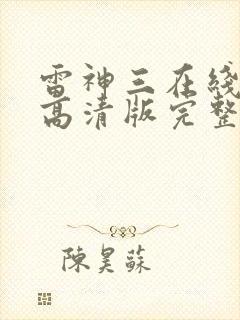 雷神三在线
高清版完整
陳昊蘇